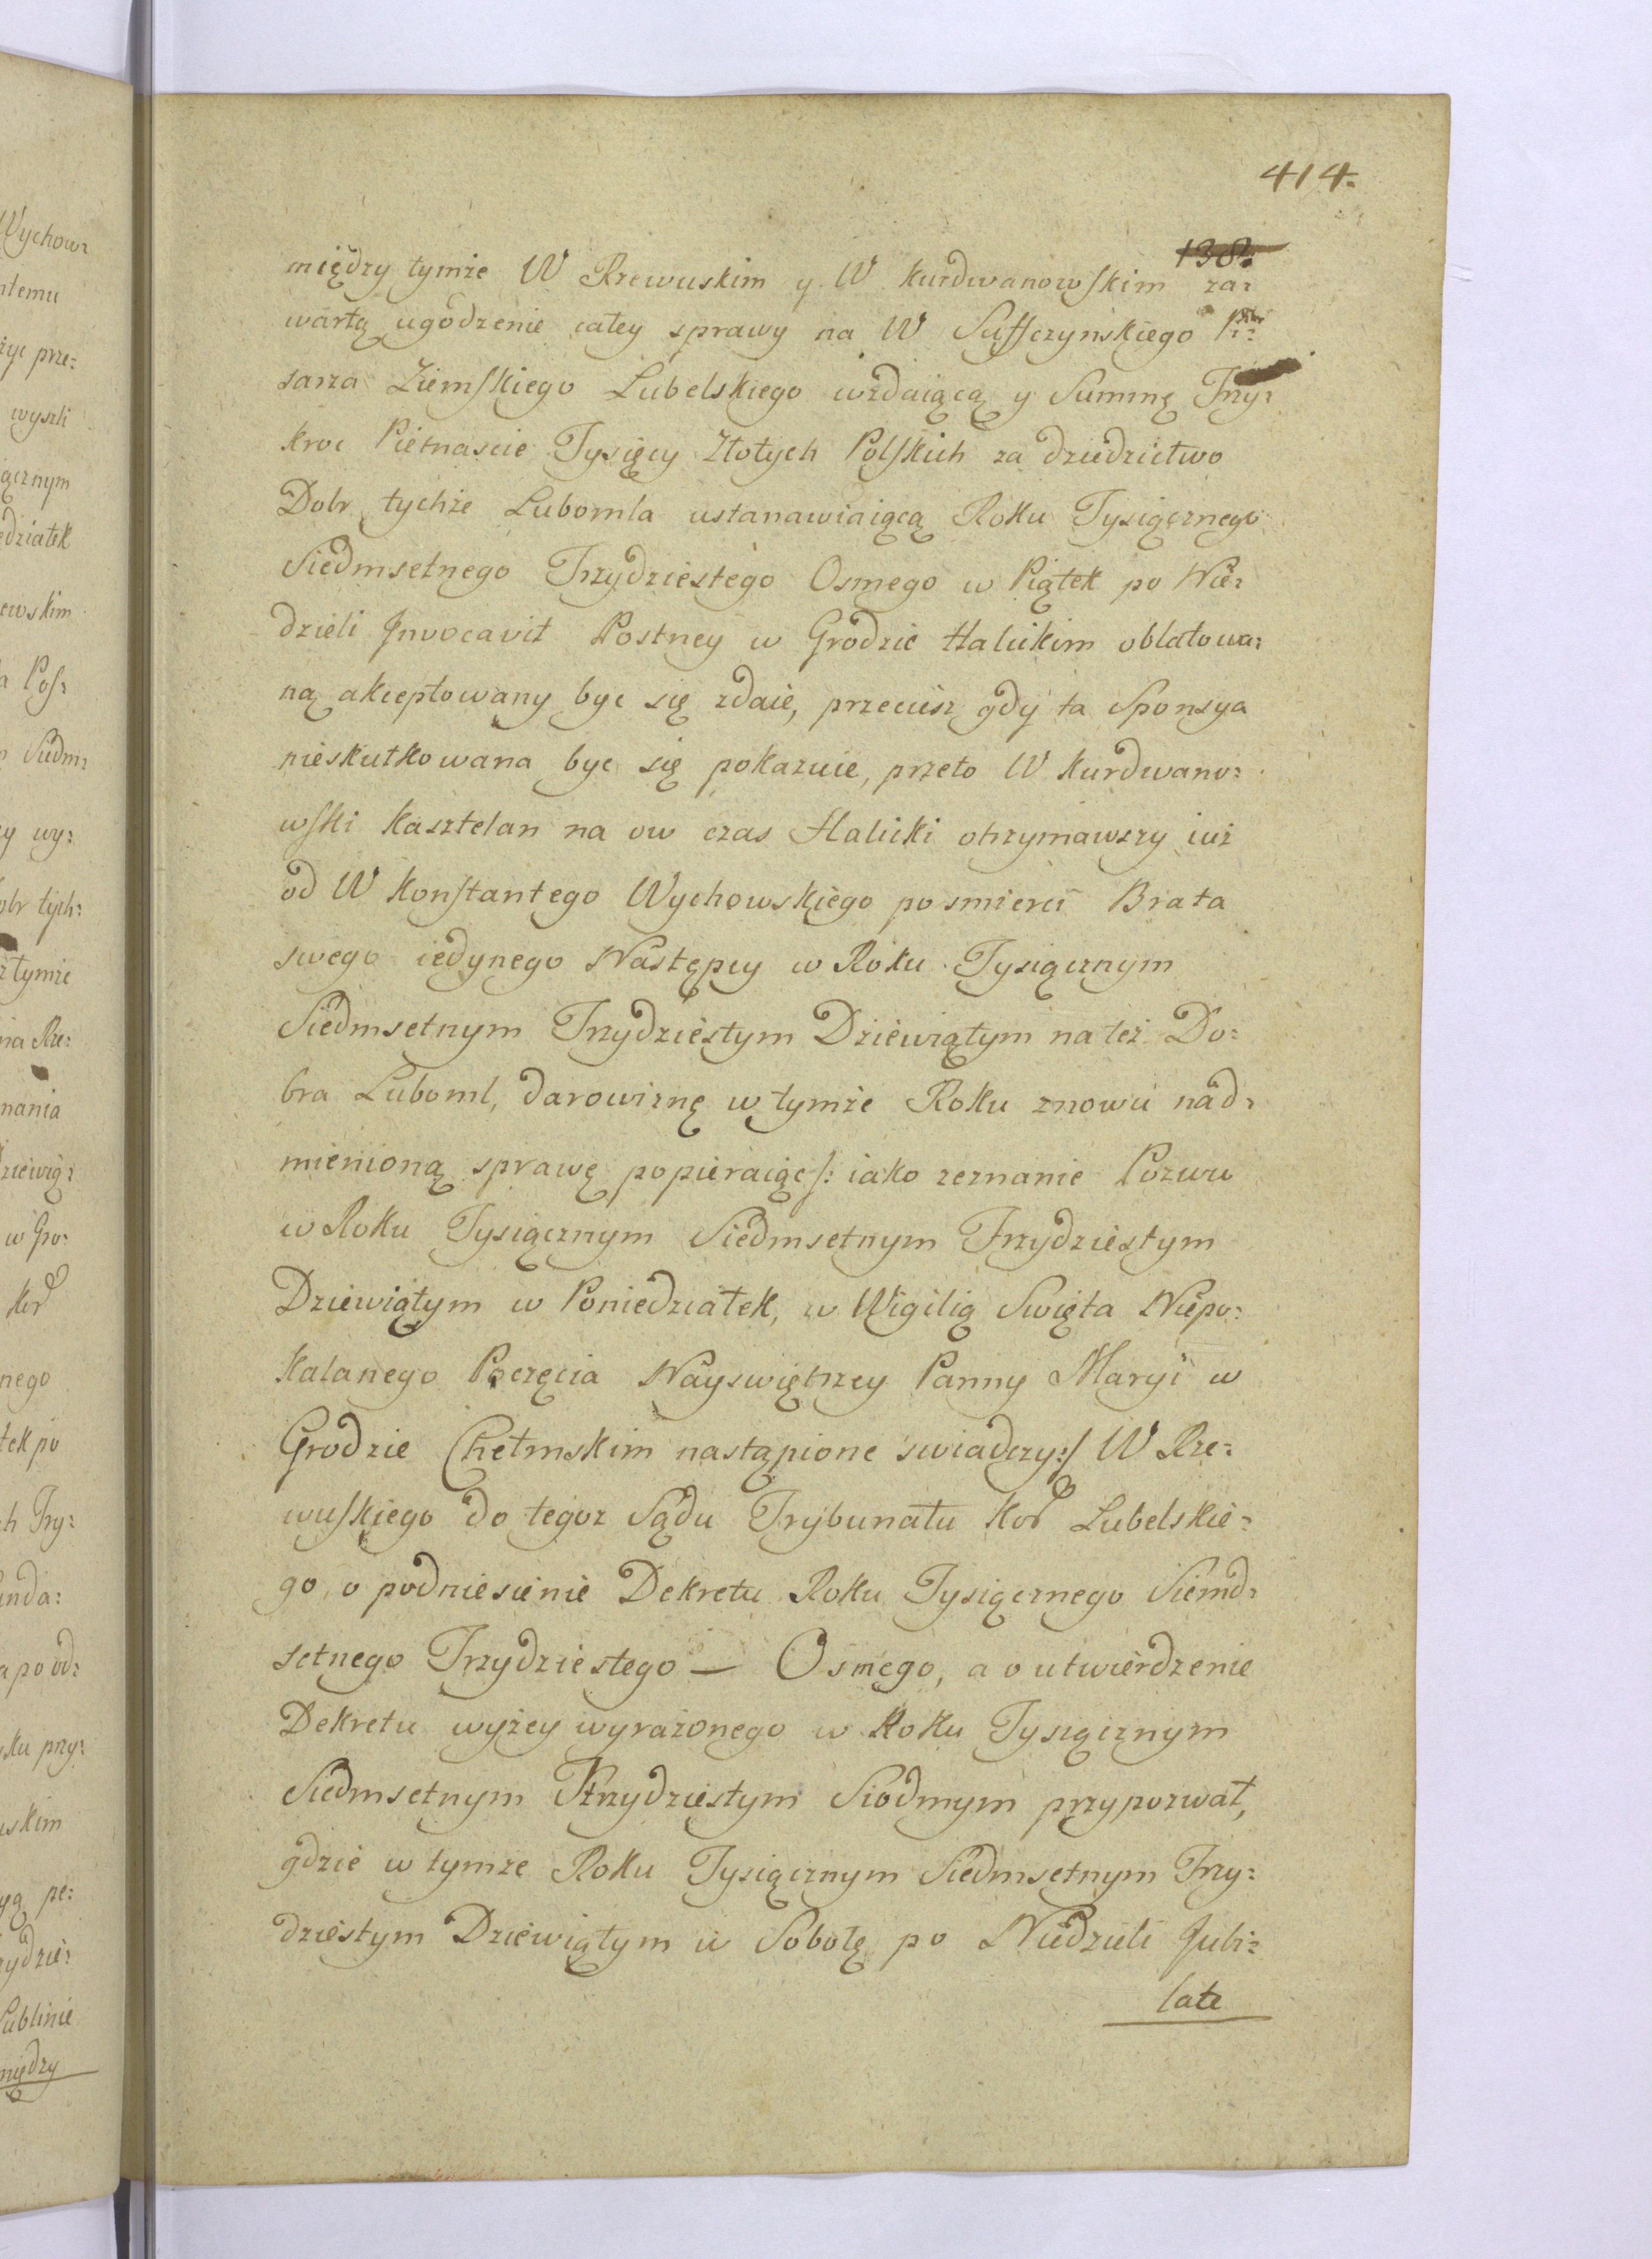 414.
138.
między tymże W Rzewuskim y W Kurdwanowskim za=
wartą ugodzenie całey sprawy na W Suffczynskiego Pi=
sarza Ziemskiego Lubelskiego wzdaiącą y Summę Trzy=
kroc Pietnascie Tysięcy Złotych Polskich za dziedzictwo
Dobr tychże Lubomla ustanawiaiącą Roku Tysiącznego
Siedmsetnego Trzydziestego Osmego w Piątek po Nie=
dzieli Invocavit Postney w Grodzie Halickim oblatowa=
ną akceptowany byc się zdaie, przeciesz gdy ta Sponsya
nieskutkowana byc się pokazuie, przeto W Kurdwano=
wski Kasztelan na ow czas Halicki otrzymawszy iuż
od W Konstantego Wychowskiego po smierci Brata
swego iedynego Następcy w Roku Tysiącznym
Siedmsetnym Trzydziestym Dziewiątym na też Do=
bra Luboml, darowiznę w tymże Roku znowu nad=
mienioną sprawę popieraiąc /: iako zeznanie Pozwu
w Roku Tysiącznym Siedmsetnym Trzydziestym
Dziewiątym w Poniedziałek, w Wigilią Swięta Niepo=
kalanego Poczęcia Nayswiętrzey Panny Maryi w
Grodzie Chełmskim nastąpione swiadczy :/ W Rze=
wuskiego do tegoz Sądu Trybunału Kor Lubelskie=
go, o podniesienie Dekretu Roku Tysiącznego Siemd=
setnego Trzydziestego — Osmego, a o utwierdzenie
Dekretu wyżey wyrażonego w Roku Tysiącznym
Siedmsetnym Trzydziestym Siodmym przypozwał,
gdzie w tymze Roku Tysiącznym Siedmsetnym Trzy=
dziestym Dziewiątym w Sobotę po Niedzieli Jubi=
late